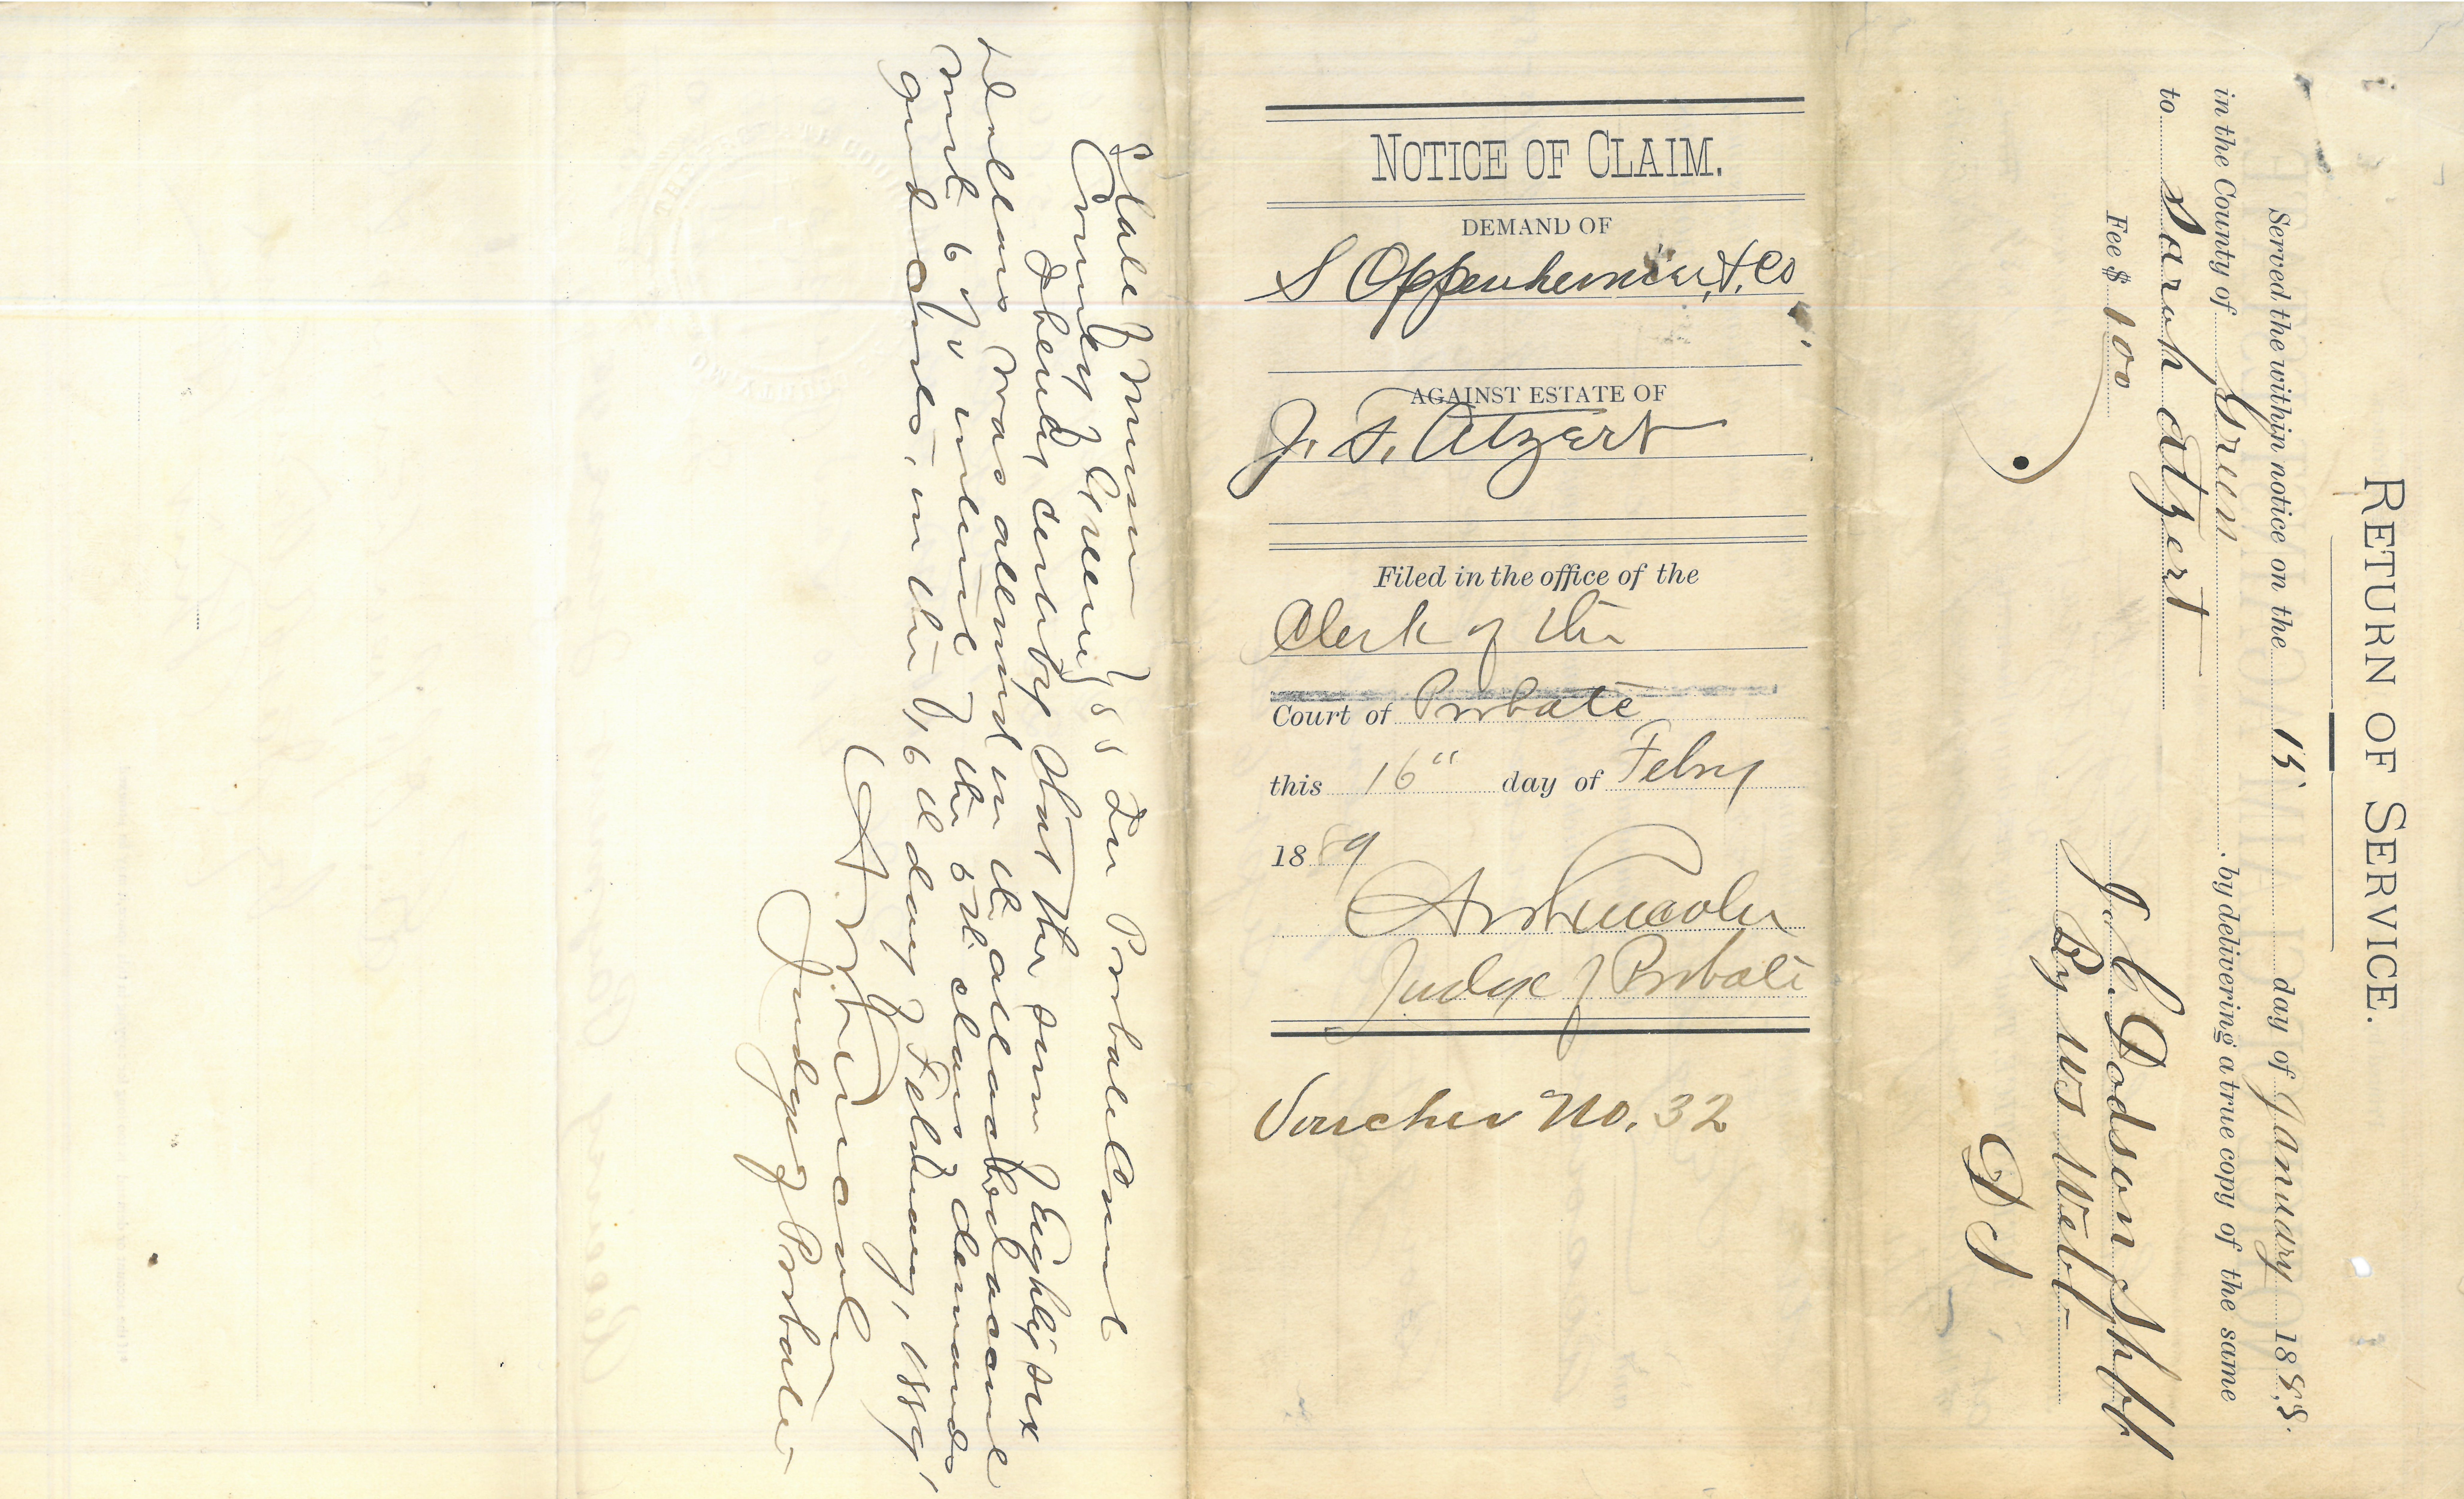 NOTICE OF CLAIM.
DEMAND OF
S Oppenheimer, & Co
AGAINST ESTATE OF
J. F. Atzert
Filed in the office of the
Clerk of the
Court of Probate
this 16" day of Febry
1889
Judge of Probate
Voucher No. 32
State of Missouri
County of Greene } ss In Probate Court
I hereby certify that the sum of Eighty six
dollars was allowed in the above
with 6 % interest of the 5th class demands
in the 16th day of February, 1889,
Judge of Probate
RETURN OF SERVICE.
Served the within notice on the 15 day of January 1888.
in the County of Green by delivering a true copy of the same
to Sarah Atzert
J. C. Dodson Shff
Fee $ 100 By W S Webb
D S